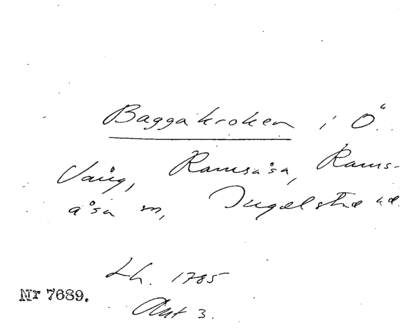 Baggakroken i Ö.
Vång, Ramsåsa, Rams-
åsa sn, Ingelstad hd.
Lh. 1785
Akt 3.
Nr 7689.